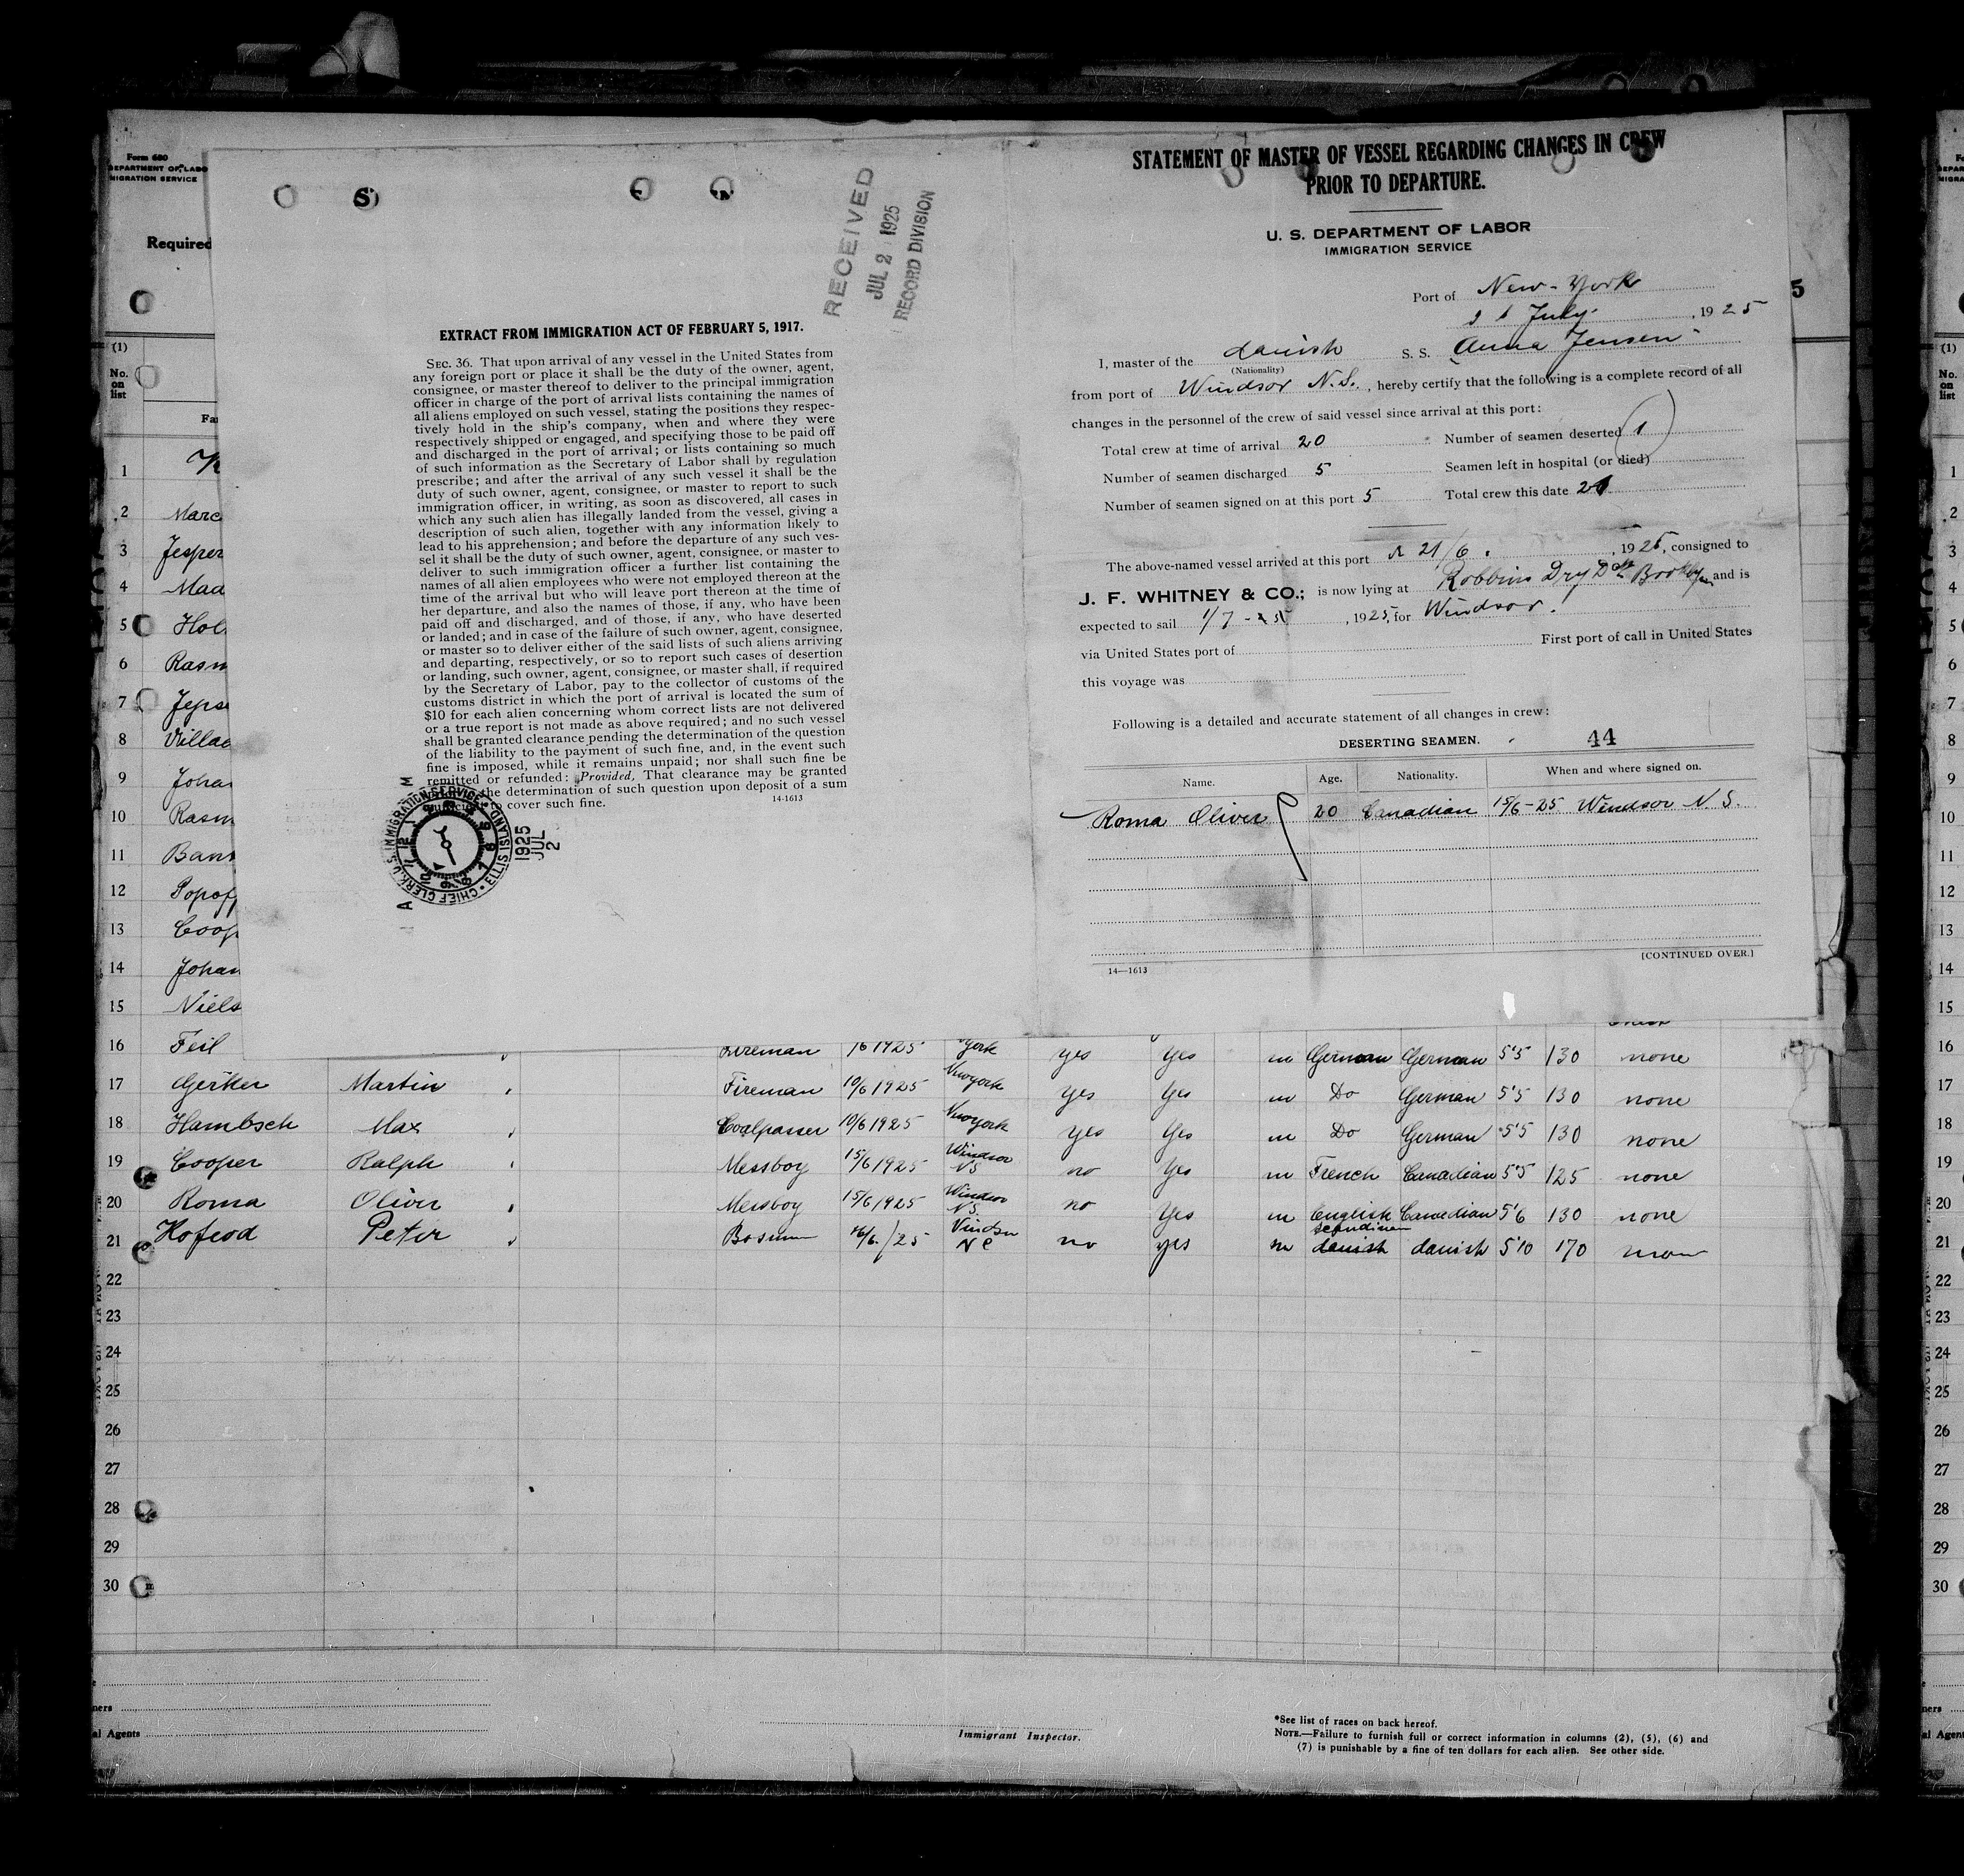 Form 680
DEPARTMENT OF LABO
MIGRATION SERVICE
Required
(1)
No.
on
list
Fa
1
2 Marc
3 Jesper
4 Mad
5 Hol
6 Rasm
7 Jeps
8 Villad
9 Johan
10 Rasm
11 Bans
12 Popof
13 Coop
14 Johan
15 Niels
S
RECEIVED
JUL 2 1925
RECORD DIVISION
EXTRACT FROM IMMIGRATION ACT OF FEBRUARY 5, 1917.
SEC. 36. That upon arrival of any vessel in the United States from
any foreign port or place it shall be the duty of the owner, agent,
consignee, or master thereof to deliver to the principal immigration
officer in charge of the port of arrival lists containing the names of
all aliens employed on such vessel, stating the positions they respec-
tively hold in the ship's company, when and where they were
respectively shipped or engaged, and specifying those to be paid off
and discharged in the port of arrival; or lists containing so much
of such information as the Secretary of Labor shall by regulation
prescribe; and after the arrival of any such vessel it shall be the
duty of such owner, agent, consignee, or master to report to such
immigration officer, in writing, as soon as discovered, all cases in
which any such alien has illegally landed from the vessel, giving a
description of such alien, together with any information likely to
lead to his apprehension; and before the departure of any such ves-
sel it shall be the duty of such owner, agent, consignee, or master to
deliver to such immigration officer a further list containing the
names of all alien employees who were not employed thereon at the
time of the arrival but who will leave port thereon at the time of
her departure, and also the names of those, if any, who have been
paid off and discharged, and of those, if any, who have deserted
or landed; and in case of the failure of such owner, agent, consignee,
or master so to deliver either of the said lists of such aliens arriving
and departing, respectively, or so to report such cases of desertion
or landing, such owner, agent, consignee, or master shall, if required
by the Secretary of Labor, pay to the collector of customs of the
customs district in which the port of arrival is located the sum of
$10 for each alien concerning whom correct lists are not delivered
or a true report is not made as above required; and no such vessel
shall be granted clearance pending the determination of the question
of the liability to the payment of such fine, and, in the event such
fine is imposed, while it remains unpaid; nor shall such fine be
remitted or refunded: Provided, That clearance may be granted
the determination of such question upon deposit of a sum
to cover such fine.
14-1613
CHIEF CLERK, U.S. IMMIGRATION SERVICE ELLIS ISLAND
1925
JUL
2
A M
STATEMENT OF MASTER OF VESSEL REGARDING CHANGES IN CREW
PRIOR TO DEPARTURE.
U. S. DEPARTMENT OF LABOR
IMMIGRATION SERVICE
Port of New-York
July 1925
I, master of the danish S. S. Anna Jensen
(Nationality)
from port of Windsor N.S., hereby certify that the following is a complete record of all
changes in the personnel of the crew of said vessel since arrival at this port:
Total crew at time of arrival 20 Number of seamen deserted 1
Number of seamen discharged 5 Seamen left in hospital (or died)
Number of seamen signed on at this port 5 Total crew this date
The above-named vessel arrived at this port 21/6, 1925, consigned to
J. F. WHITNEY & CO.; is now lying at Robbins Dry Dock Brooklyn and is
expected to sail 1/7-25, 1925, for Windsor.
via United States port of First port of call in United States
this voyage was
Following is a detailed and accurate statement of all changes in crew:
DESERTING SEAMEN. 44
Name. Age. Nationality. When and where signed on.
Roma Oliver 20 Canadian 15/6-25 Windsor N S.
14—1613
[CONTINUED OVER.]
5
16 Feil Fireman 1925 york yes yes m German German 5'5 130 none
17 Gerker Martin Fireman 10/6 1925 Newyork yes yes m Do German 5'5 130 none
18 Hambsch Max Coalpasser 10/6 1925 Newyork yes yes m Do German 5'5 130 none
19 Cooper Ralph Messboy 15/6 1925 Windsor NS no yes m French Canadian 5'5 125 none
20 Roma Oliver Messboy 15/6 1925 Windsor NS no yes m English Canadian 5'6 130 none
21 Hofeod Peter 16/6/25 no yes m danish danish 5'10 170
22
23
24
25
26
27
28
29
30
ners
al Agents
Immigrant Inspector.
*See list of races on back hereof.
NOTE.—Failure to furnish full or correct information in columns (2), (5), (6) and
(7) is punishable by a fine of ten dollars for each alien. See other side.